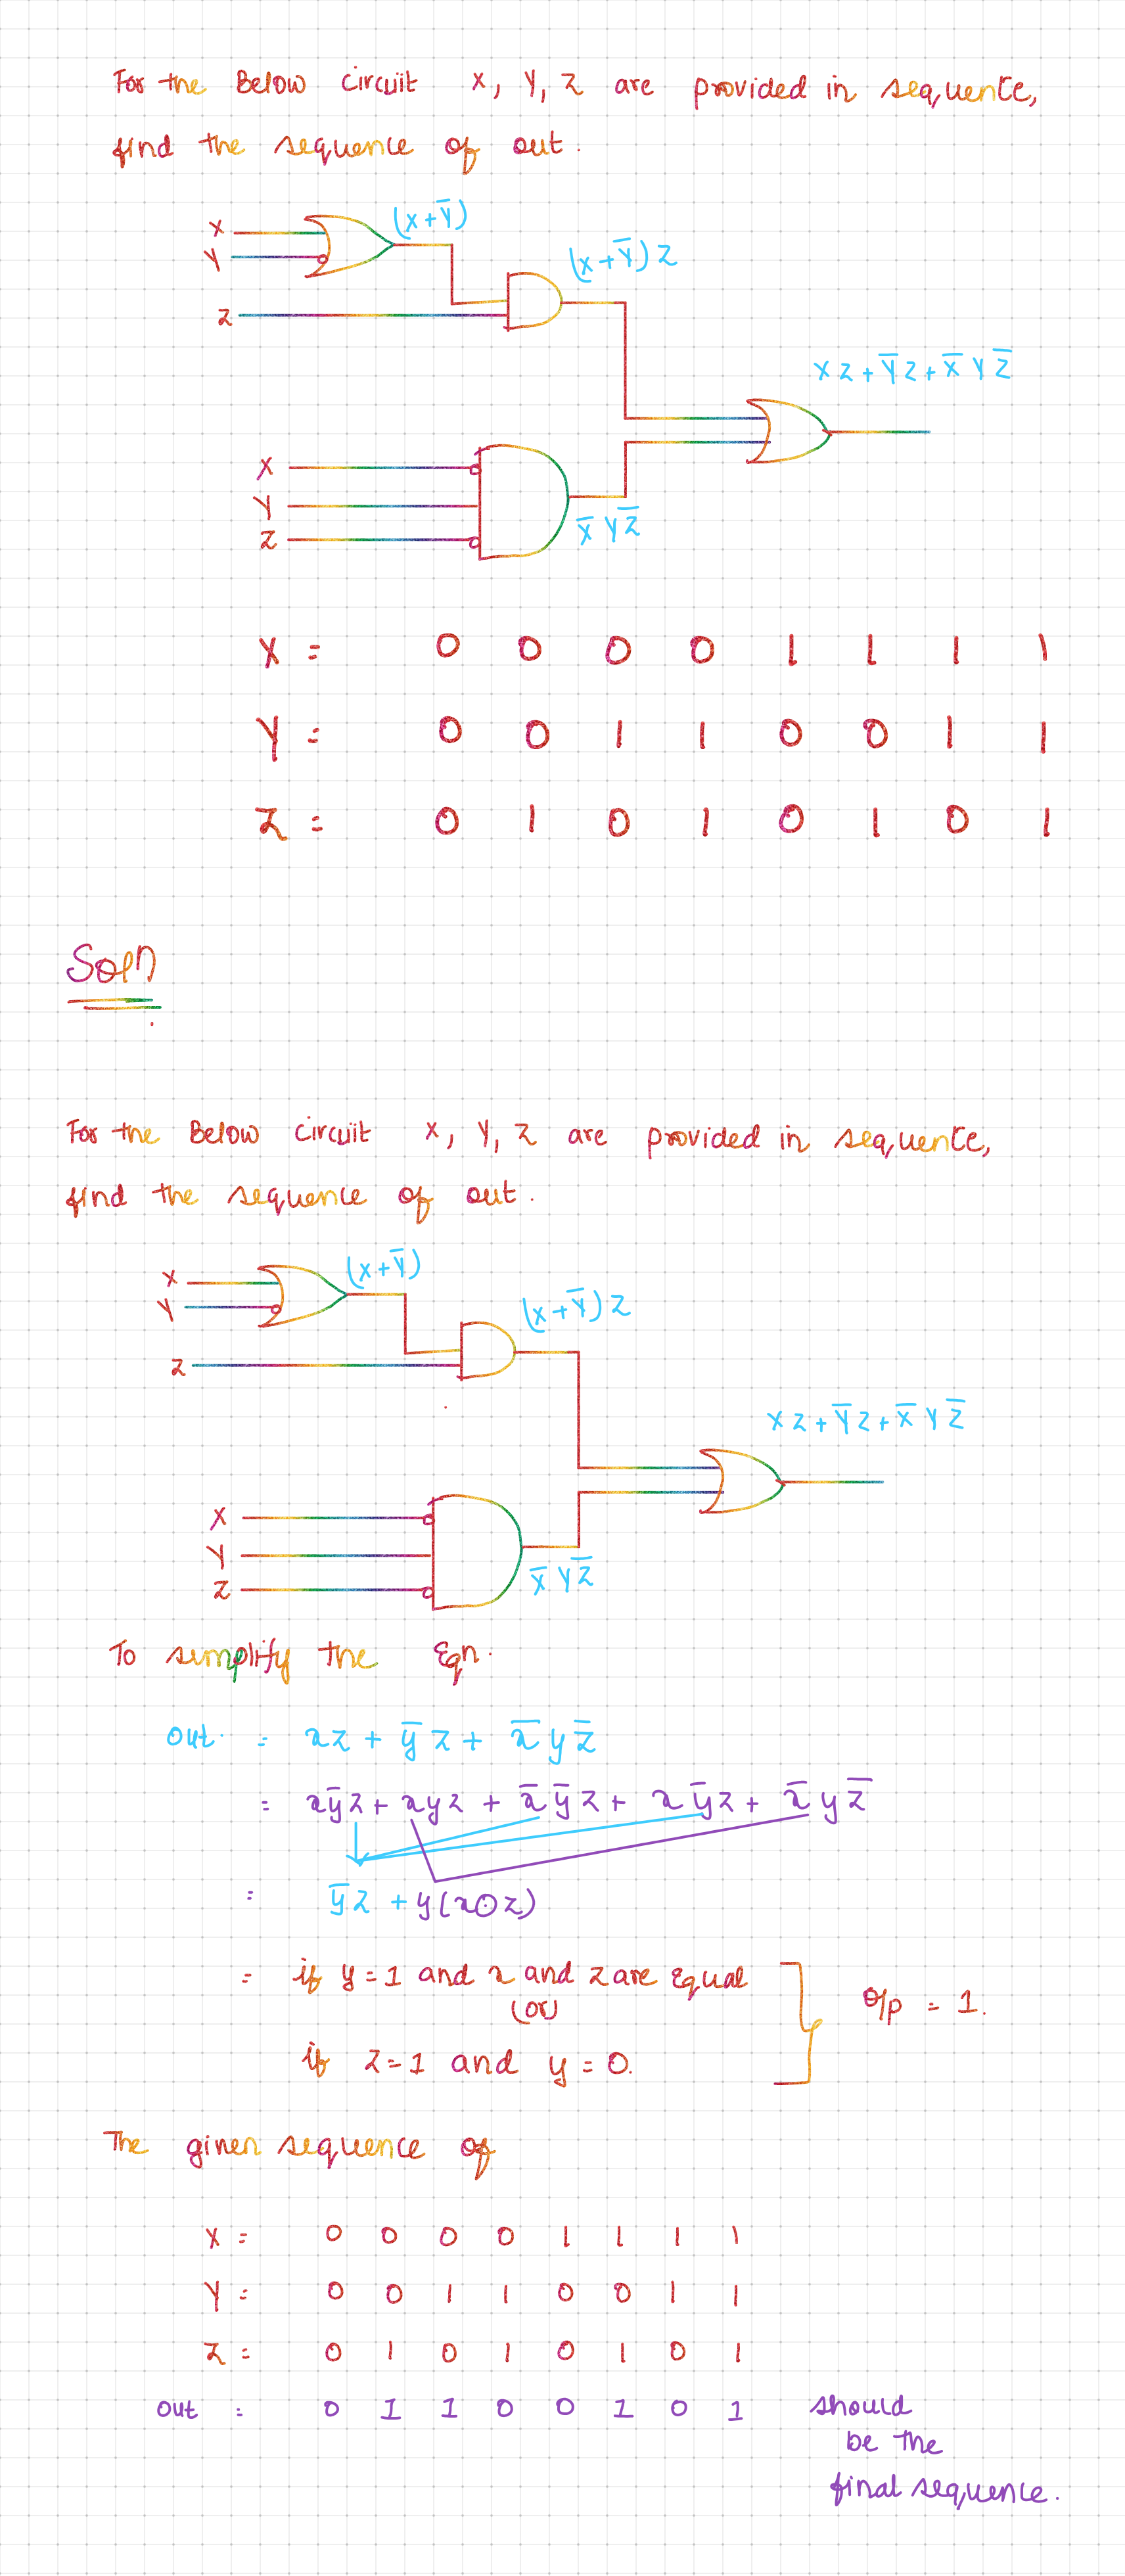 For the Below circuit X, Y, Z are provided in sequence,
find the sequence of out.
X
(X+Y̅)
Y
(X+Y̅)Z
Z
XZ+Y̅Z+X̅YZ̅
X
Y
Z
X̅YZ̅
X = 0 0 0 0 1 1 1 1
Y = 0 0 1 1 0 0 1 1
Z = 0 1 0 1 0 1 0 1
Soln
For the Below circuit X, Y, Z are provided in sequence,
find the sequence of out.
X
(X+Y̅)
Y
(X+Y̅)Z
Z
XZ+Y̅Z+X̅YZ̅
X
Y
Z
X̅YZ̅
To simplify the Eqn.
Out = xz + y̅z + x̅yz̅
= xy̅z + xyz + x̅y̅z + xy̅z + x̅yz̅
= y̅z + y(x⊙z)
= if y=1 and x and z are Equal
(or)
O/p = 1.
if z=1 and y=0.
The given sequence of
X = 0 0 0 0 1 1 1 1
Y = 0 0 1 1 0 0 1 1
Z = 0 1 0 1 0 1 0 1
Out = 0 1 1 0 0 1 0 1 should
be the
final sequence.